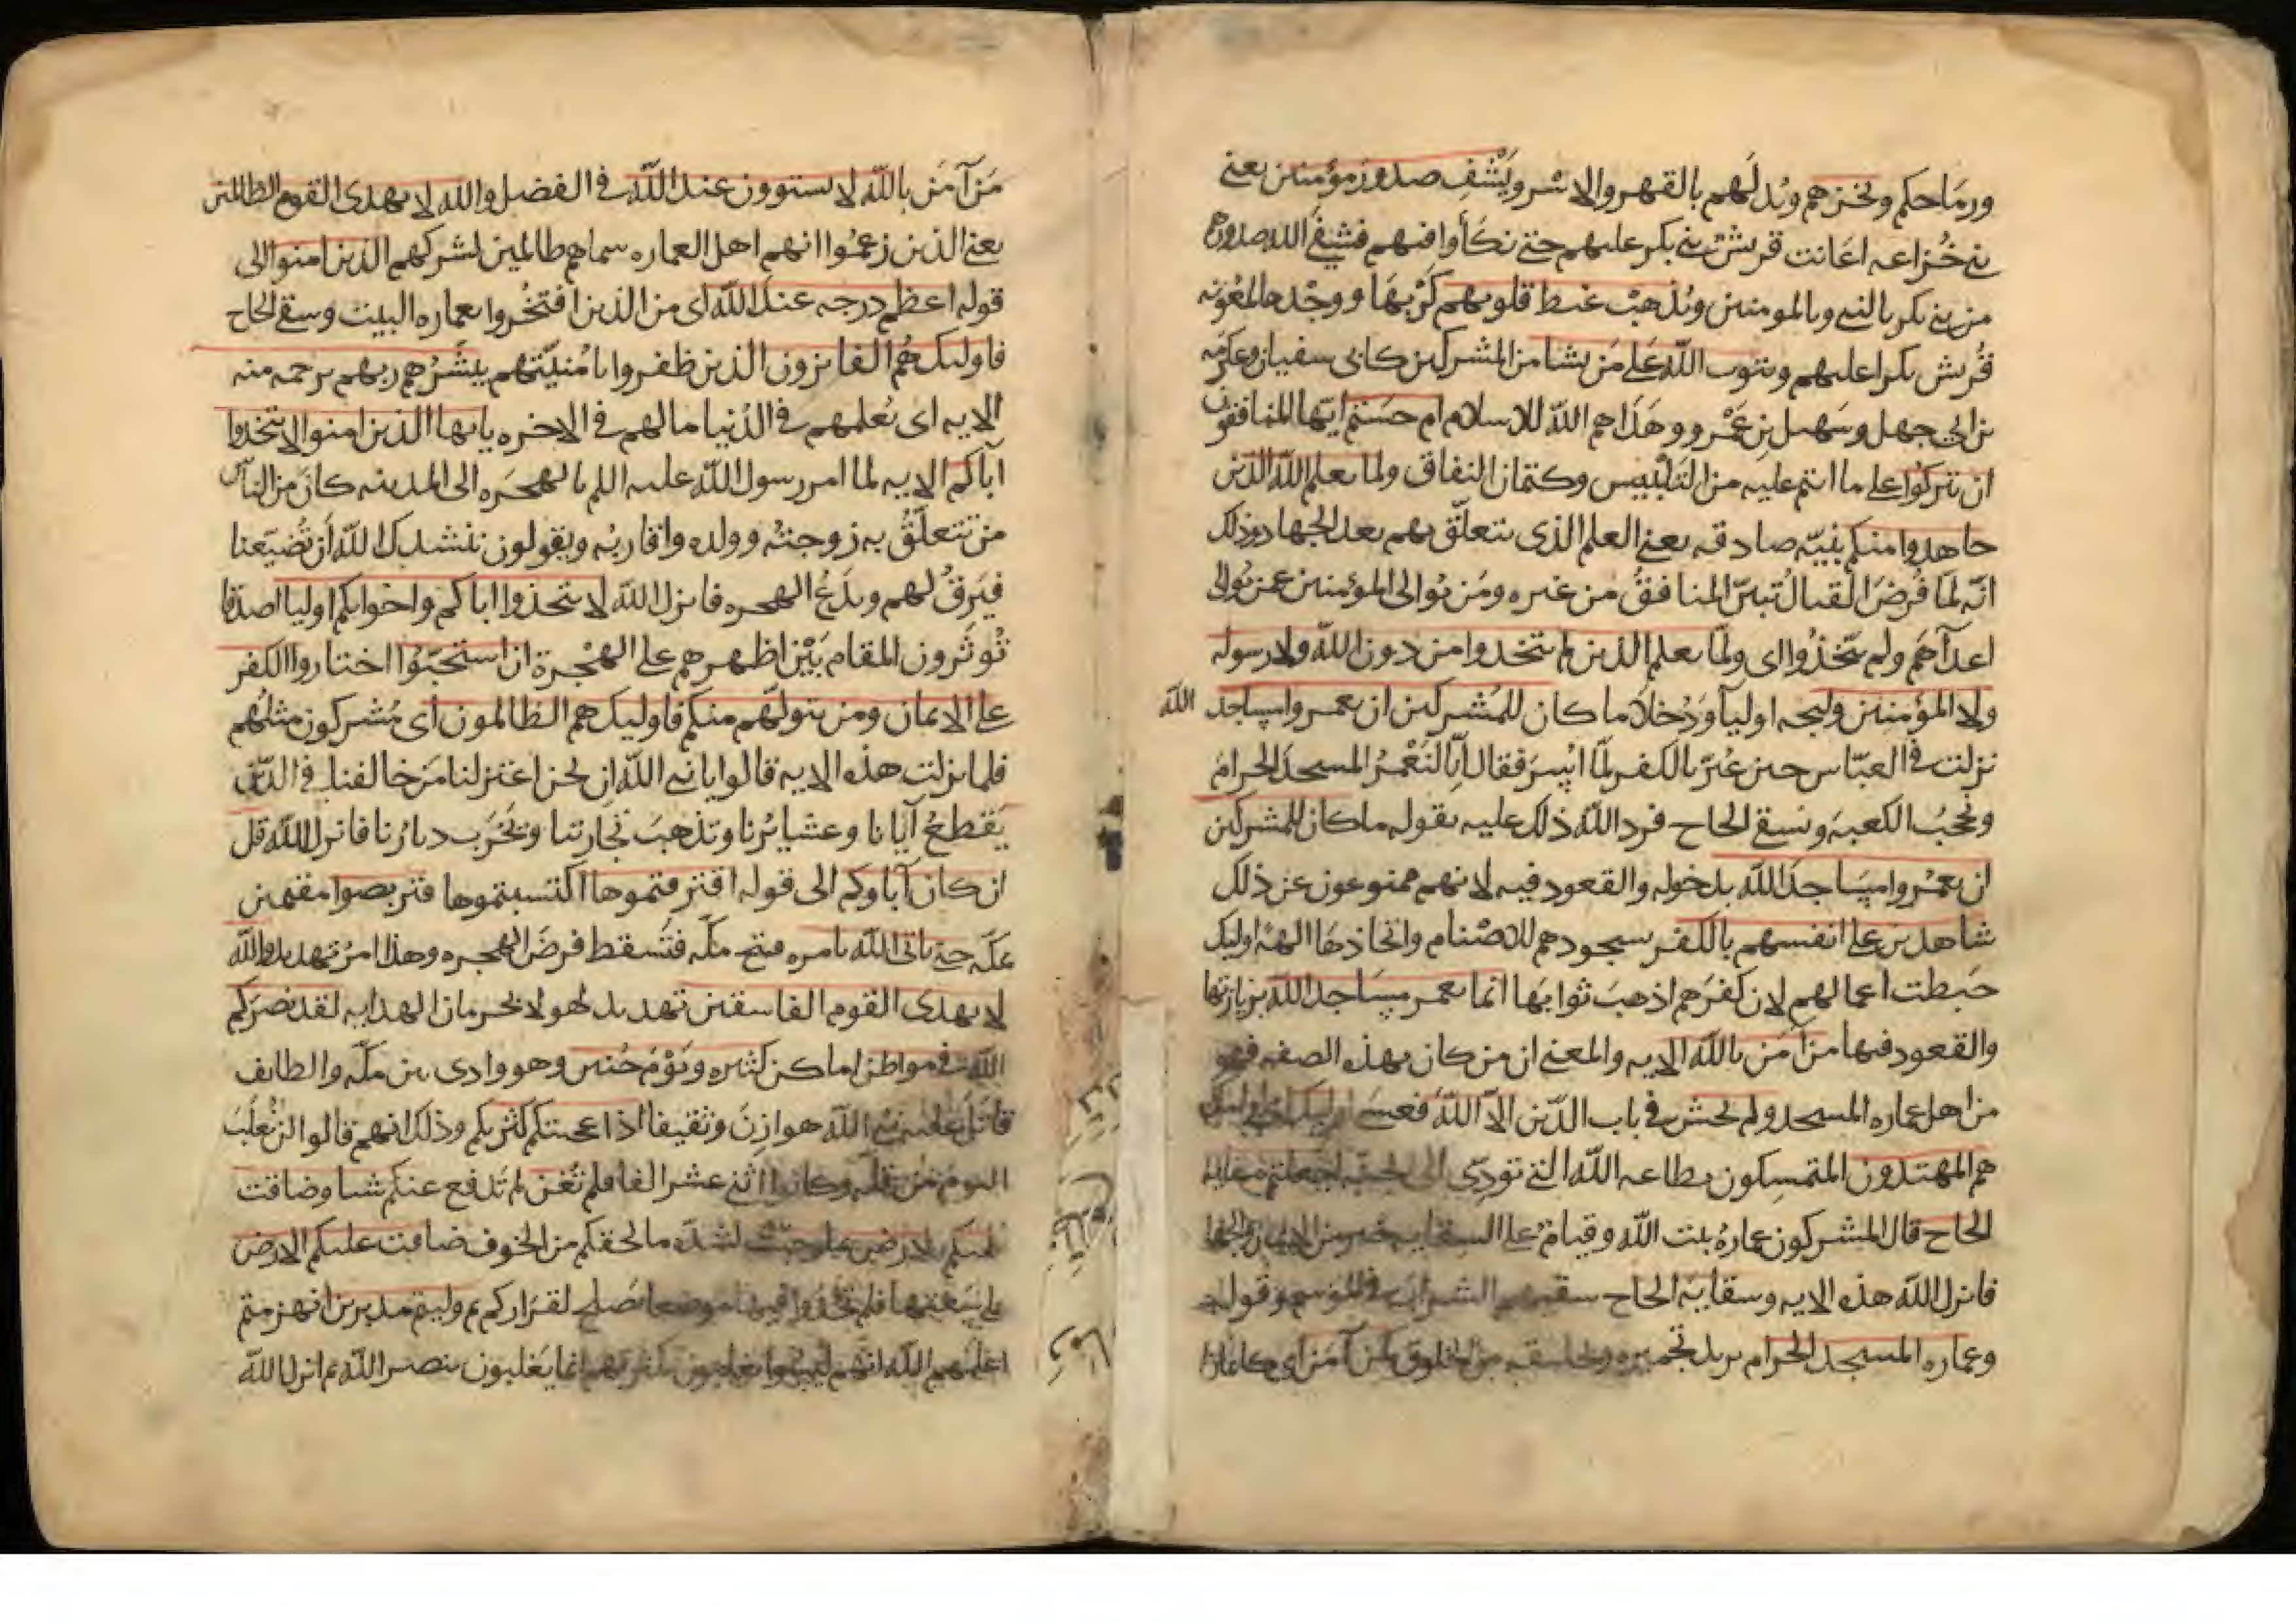 ورماحكم ونخزهم ويذلهم بالقهر والاسر ويشف صدور مؤمنين يعنى
بنى خزاعه اعانت قريش بنى بكر عليهم حتى نكأوا فيهم فشفى الله صدورهم
من بنى بكر بالنبى وبالمومنين ويذهب غيظ قلوبهم كربها ووجدها لمعونه
قريش بكرا عليهم ويتوب الله على من يشا من المشركين كابى سفيان وعكرمه
بن ابى جهل وسهيل بن عمرو وهداهم الله للاسلام ام حسبتم ايها المنافقون
ان تتركوا على ما انتم عليه من التلبيس وكتمان النفاق ولما يعلم الله الذين
جاهدوا منكم بنيه صادقه يعنى العلم الذى يتعلق بهم بعد الجهاد وذلك
انه لما فرض القتال تبين المنافق من غيره ومن يوالى المؤمنين ممن يوالى
اعداهم ولم يتخذوا اى ولما يعلم الذين لم يتخدوا من دون الله ولا رسوله
ولا المؤمنين وليجه اوليا ودخلا ما كان للمشركين ان يعمروا مساجد الله
نزلت فى العباس حين عير بالكفر لما اسر فقال انا لنعمر المسجد الحرام
ونحجب الكعبه ونسقى الحاج فرد الله ذلك عليه بقوله ما كان للمشركين
ان يعمروا مساجد الله بدخوله والقعود فيه لانهم ممنوعون عن ذلك
شاهدين على انفسهم بالكفر سجودهم للاصنام واتخاذها الهه اوليك
حبطت اعمالهم لان كفرهم اذهب ثوابها انما يعمر مساجد الله بزيارتها
والقعود فيها من آمن بالله الايه والمعنى ان من كان بهذه الصفه فهو
من اهل عماره المسجد ولم يخش فى باب الدين الا الله فعسى اوليك
هم المهتدون المتمسكون بطاعه الله التى تودى الى الجنه اجعلتم سقايه
الحاج قال المشركون عماره بيت الله وقيام على السقايه خير من الايمان والجهاد
فانزل الله هذه الايه وسقايه الحاج سقيهم الشراب فى الموسم وقوله
وعماره المسجد الحرام يريد تجميره كمن آمن اى كايمان
من آمن بالله لا يستوون عند الله فى الفضل والله لا يهدى القوم الظالمين
يعنى الذين زعموا انهم اهل العماره سماهم ظالمين لشركهم الذين امنوا الى
قوله اعظم درجه عند الله اى من الذين افتخروا بعماره البيت وسقى الحاج
فاوليك هم الفايزون الذين ظفروا بامنيتهم يبشرهم ربهم برحمه منه
الايه اى يعلمهم فى الدنيا ما لهم فى الاخره يايها الذين امنوا لا تتخدوا
آباكم الايه لما امر رسول الله عليه اللم بالهجره الى المدينه كان من الناس
من تتعلق به زوجته وولده واقاربه ويقولون ننشدك الله ان تضيعنا
فيرق لهم ويدع الهجره فانزل الله لا تتخذوا اباكم واخوانكم اوليا اصدقا
توثرون المقام بين اظهرهم على الهجرة ان استحبوا اختاروا الكفر
على الايمان ومن يتولهم منكم فاوليك هم الظالمون اى مشركون مثلهم
فلما نزلت هذه الايه قالوا يا نبى الله ان نحن اعتزلنا من خالفنا فى الدين
يقطع آبانا وعشايرنا وتذهب تجارتنا وتخرب ديارنا فانزل الله قل
ان كان آباوكم الى قوله اقترفتموها اكتسبتموها فتربصوا مقيمين
بمكه حتى ياتى الله بامره فتح مكه فتسقط فرض الهجره وهذا امر تهديد والله
لا يهدى القوم الفاسقين تهديد لهولا بحرمان الهدايه لقد نصركم
الله فى مواطن اماكن كثيره ويوم حنين وهو وادى بين مكه والطايف
قاتل عليه نبى الله هوازن وثقيفا اذ اعجبتكم كثرتكم وذلك انهم قالوا لن نغلب
اليوم من قله وكانوا اثنى عشر الفا فلم تغن لم تدفع عنكم شيا وضاقت
عليكم الارض بما رحبت لشده ما لحقكم من الخوف ضاقت عليكم الارض
على سعتها فلم تجدوا فيها موضعا يصلح لقراركم ثم وليتم مدبرين انهزمتم
اعلمهم الله انهم ليسوا يغلبون بكثرتهم انما يغلبون بنصر الله ثم انزل الله